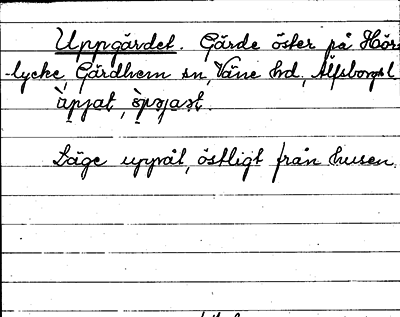 Uppgärdet. Gärde öster på Hörs-
lycke, Gärdhem sn, Väne hd, Älfsborgs l.
Läge uppåt, östligt från husen.